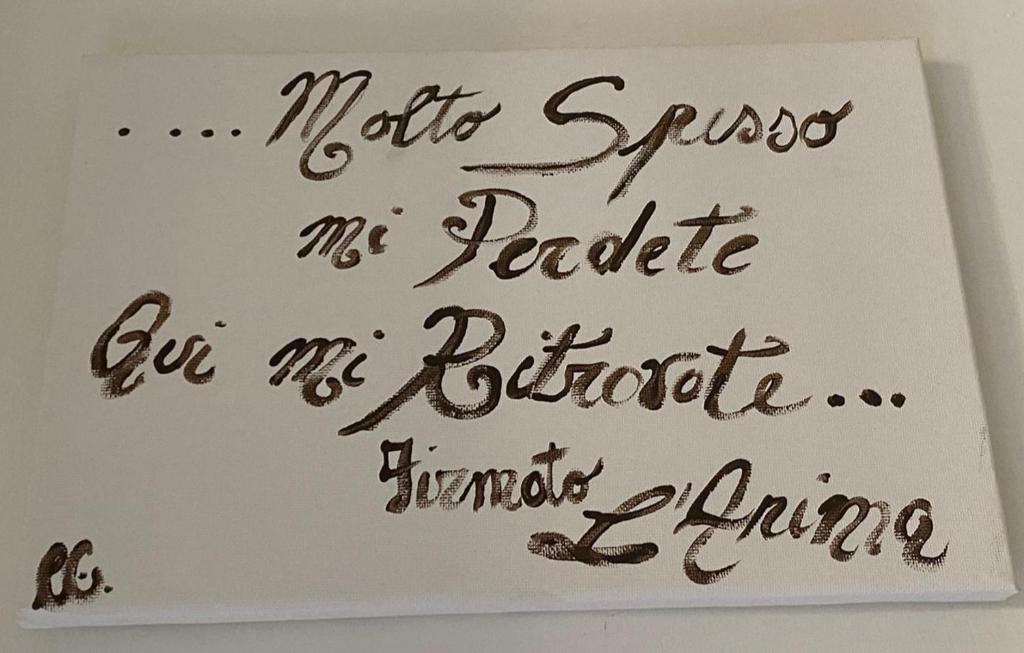 . ... Molto Spesso
mi Perdete
Qui mi Ritrovate...
Firmato L'Anima